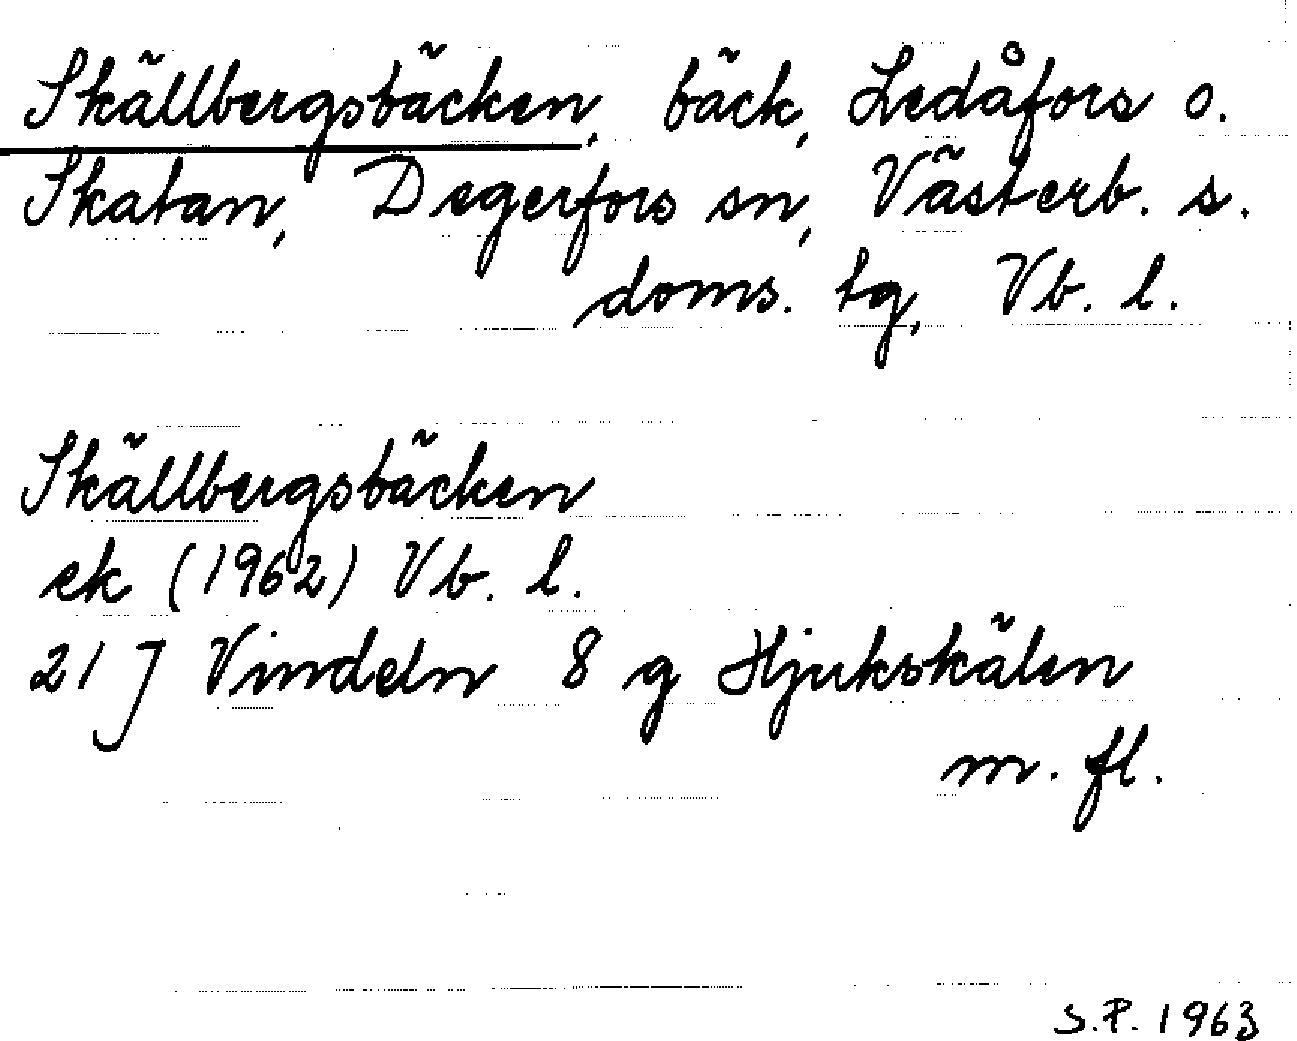 Skällbergsbäcken, bäck, Ledåfors o.
Skatan, Degerfors sn, Västerb. s.
doms. tg, Vb. l.
Skällbergsbäcken
ek (1962) Vb. l.
21 J Vindeln 8 g Hjukskälen
m. fl.
S.P. 1963